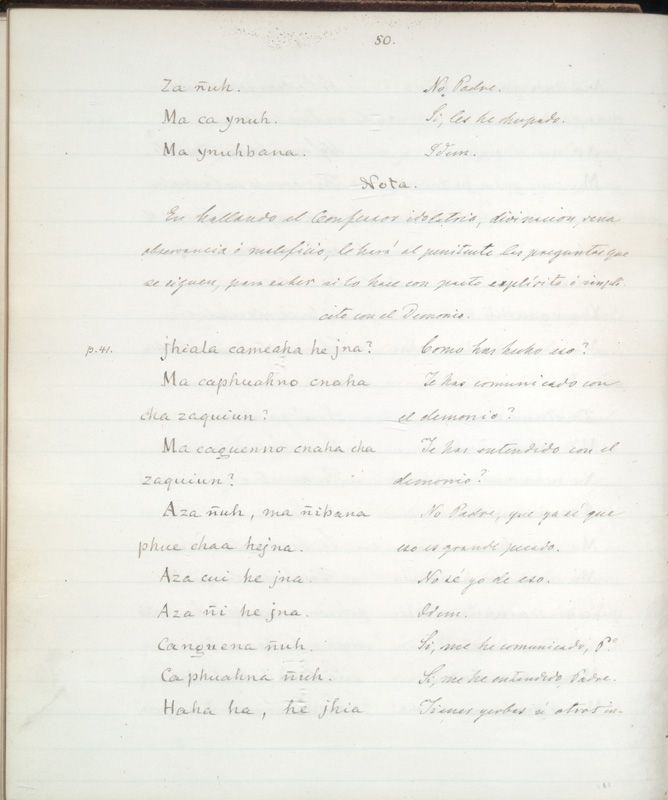 50.
Za ñuh. No, Padre.
Ma ca ynuh. Si, les he chupado.
Ma ynuhbana. Idem.
Nota.
En hallando el Confesor idolatria, divinacion, vana
observancia ó maleficio, le hará al penitente las preguntas que
se siguen, para saber si lo hace con pacto explícito ó impli-
cito con el Demonio.
p. 41. jhiala cameaha he jna? Como has hecho eso?
Ma caphuahno cnaha Te has comunicado con
cha zaquiun? el demonio?
Ma caguenno cnaha cha Te has entendido con el
zaquiun? demonio?
Aza ñuh, ma ñibana No Padre, que ya sé que
phue chaa hejna. eso es grande pecado.
Aza cui he jna. No sé yo de eso.
Aza ñi he jna. Idem.
Canguena ñuh. Si, me he comunicado, P.e
Caphuahna ñuh. Si, me he entendido, Padre.
Haha ha, he jhia Tienes yerbas ú otros in-